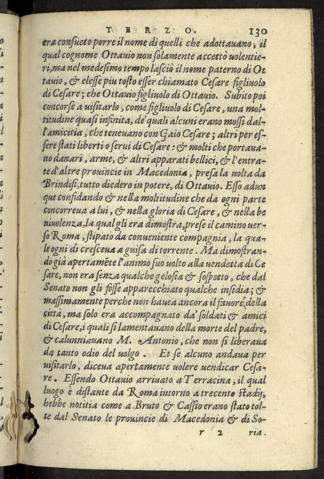 TERZO. 130
era consueto porre il nome di quelli che adottauano, il
qual cognome Ottauio non solamente accettò uolentie-
ri, ma nel medesimo tempo lasciò il nome paterno di Ot
tauio, & elesse piu tosto esser chiamato Cesare figliuolo
di Cesare; che Ottauio figliuolo di Ottauio. Subito poi
concorse a uisitarlo, come figliuolo di Cesare, una mol-
titudine quasi infinita, de' quali alcuni erano mossi dal-
l'amicitia, che teneuano con Gaio Cesare; altri per es-
sere stati liberti o serui di Cesare: & molti che portaua-
no danari, arme, & altri apparati bellici, & l'entra-
te d'altre prouincie in Macedonia, presa la uolta da
Brindisi, tutto diedero in potere, di Ottauio. Esso adun
que confidando & nella moltitudine che da ogni parte
concorreua a lui, & nella gloria di Cesare, & nella be
niuolenza, la qual gli era dimostra, prese il camino uer-
so Roma, stipato da conueniente compagnia, la qua-
le ogni di cresceua a guisa di torrente. Ma dimostran-
do già apertamẽte l'animo suo uolto alla uendetta di Ce
sare, non era senza qualche gelosia & sospetto, che dal
Senato non gli fosse apparecchiato qualche insidia; &
massimamente perche non haueua ancora il fauore della
città, ma solo era accompagnato da' soldati & amici
di Cesare, i quali si lamentauano della morte del padre,
& calunniauano M. Antonio, che non si liberaua
da tanto odio del uolgo. Et se alcuno andaua per
uisitarlo, diceua apertamente uolere uendicar Cesa-
re. Essendo Ottauio arriuato a Terracina, il qual
luogo è distante da Roma intorno a trecento stadij,
hebbe notitia come a Bruto & Cassio erano stato tol-
te dal Senato le prouincie di Macedonia & di So-
r 2 ria.